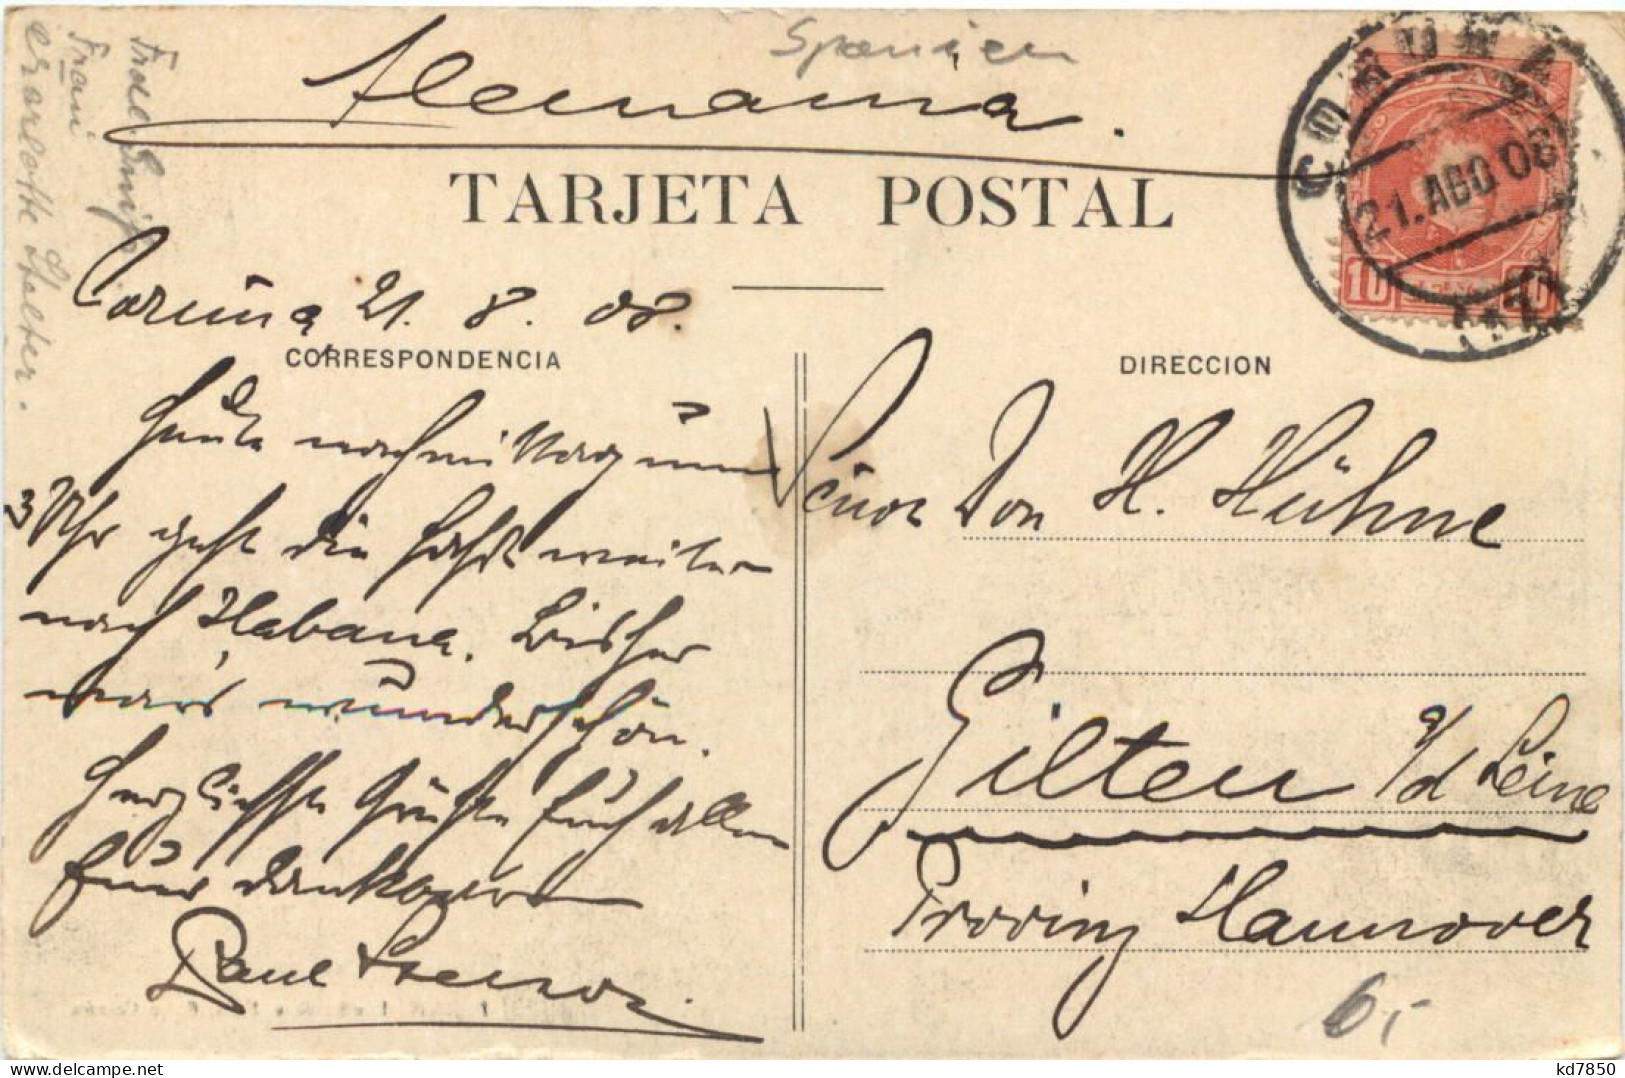 Spanien
Alemania.
CORUÑA
21.AGO.08
10 10
TARJETA POSTAL
Coruña 21. 8. 08.
CORRESPONDENCIA
DIRECCION
Heute nachmittag um
3 Uhr geht die Fahrt weiter
nach Habana. Bisher
war's wunderschön.
Herzlichste Grüße Euch allen
Euer dankbarer
Paul
Señor Don H. Hühne
Gilten a/d Leine
Provinz Hannover
6,-
Frani
Charlotte Stelter.
kd7850